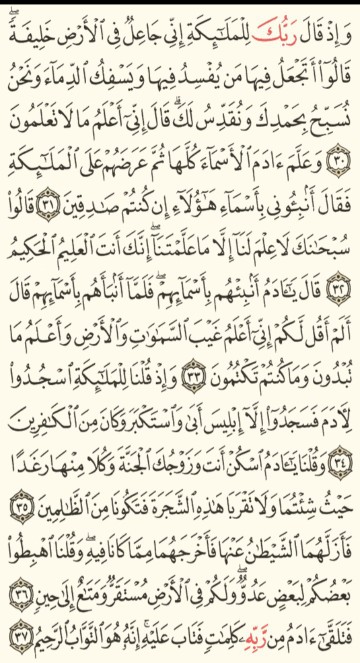 وَإِذْ قَالَ رَبُّكَ لِلْمَلَٰٓئِكَةِ إِنِّى جَاعِلٌ فِى ٱلْأَرْضِ خَلِيفَةًۖ
قَالُوٓا۟ أَتَجْعَلُ فِيهَا مَن يُفْسِدُ فِيهَا وَيَسْفِكُ ٱلدِّمَآءَ وَنَحْنُ
نُسَبِّحُ بِحَمْدِكَ وَنُقَدِّسُ لَكَۖ قَالَ إِنِّىٓ أَعْلَمُ مَا لَا تَعْلَمُونَ
٣٠ وَعَلَّمَ ءَادَمَ ٱلْأَسْمَآءَ كُلَّهَا ثُمَّ عَرَضَهُمْ عَلَى ٱلْمَلَٰٓئِكَةِ
فَقَالَ أَنۢبِـُٔونِى بِأَسْمَآءِ هَٰٓؤُلَآءِ إِن كُنتُمْ صَٰدِقِينَ ٣١ قَالُوا۟
سُبْحَٰنَكَ لَا عِلْمَ لَنَآ إِلَّا مَا عَلَّمْتَنَآۖ إِنَّكَ أَنتَ ٱلْعَلِيمُ ٱلْحَكِيمُ
٣٢ قَالَ يَٰٓـَٔادَمُ أَنۢبِئْهُم بِأَسْمَآئِهِمْۖ فَلَمَّآ أَنۢبَأَهُم بِأَسْمَآئِهِمْ قَالَ
أَلَمْ أَقُل لَّكُمْ إِنِّىٓ أَعْلَمُ غَيْبَ ٱلسَّمَٰوَٰتِ وَٱلْأَرْضِ وَأَعْلَمُ مَا
تُبْدُونَ وَمَا كُنتُمْ تَكْتُمُونَ ٣٣ وَإِذْ قُلْنَا لِلْمَلَٰٓئِكَةِ ٱسْجُدُوا۟
لِـَٔادَمَ فَسَجَدُوٓا۟ إِلَّآ إِبْلِيسَ أَبَىٰ وَٱسْتَكْبَرَ وَكَانَ مِنَ ٱلْكَٰفِرِينَ
٣٤ وَقُلْنَا يَٰٓـَٔادَمُ ٱسْكُنْ أَنتَ وَزَوْجُكَ ٱلْجَنَّةَ وَكُلَا مِنْهَا رَغَدًا
حَيْثُ شِئْتُمَا وَلَا تَقْرَبَا هَٰذِهِ ٱلشَّجَرَةَ فَتَكُونَا مِنَ ٱلظَّٰلِمِينَ ٣٥
فَأَزَلَّهُمَا ٱلشَّيْطَٰنُ عَنْهَا فَأَخْرَجَهُمَا مِمَّا كَانَا فِيهِۖ وَقُلْنَا ٱهْبِطُوا۟
بَعْضُكُمْ لِبَعْضٍ عَدُوٌّۖ وَلَكُمْ فِى ٱلْأَرْضِ مُسْتَقَرٌّ وَمَتَٰعٌ إِلَىٰ حِينٍ ٣٦
فَتَلَقَّىٰٓ ءَادَمُ مِن رَّبِّهِۦ كَلِمَٰتٍ فَتَابَ عَلَيْهِۚ إِنَّهُۥ هُوَ ٱلتَّوَّابُ ٱلرَّحِيمُ ٣٧